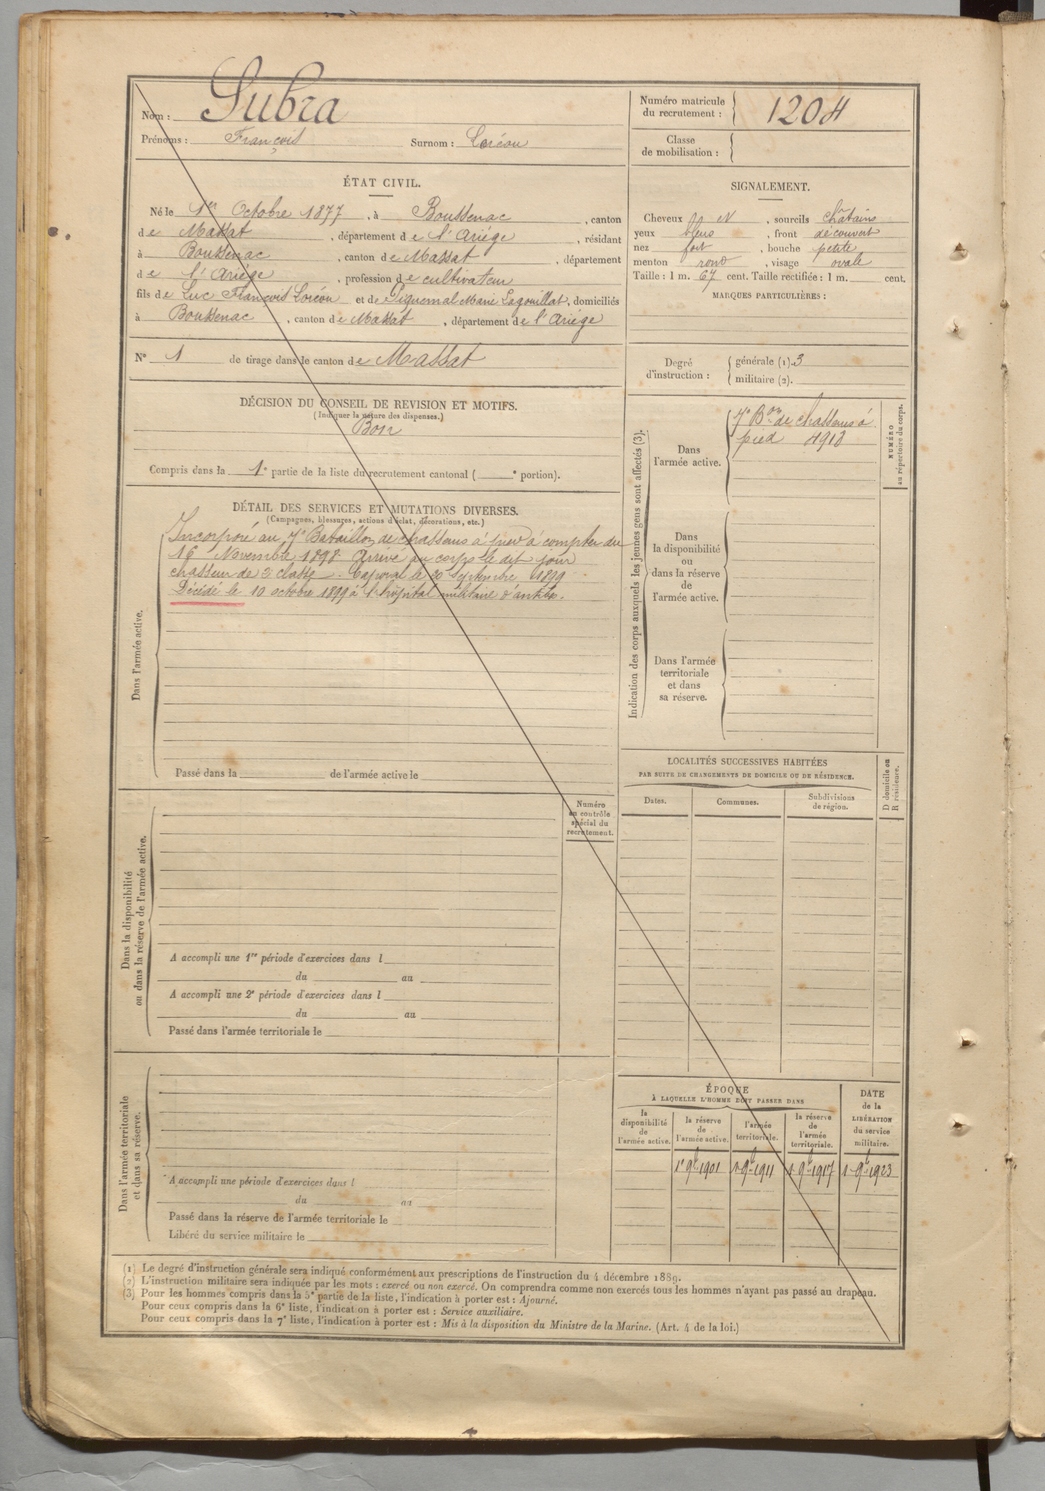 Nom : Subra
Prénoms : François Surnom : Loicou
Numéro matricule
du recrutement : 1204
Classe
de mobilisation :
ÉTAT CIVIL.
Né le 1er Octobre 1877, à Boussenac, canton
de Massat, département de l'Ariége, résidant
à Boussenac, canton de Massat, département
de l'Ariége, profession de cultivateur
fils de Luc François Loicou et de Piquemal Marie Lagouillat, domiciliés
à Boussenac, canton de Massat, département de l'Ariége
N° 1 de tirage dans le canton de Massat
SIGNALEMENT.
Cheveux , sourcils châtains
yeux bleus, front découvert
nez fort, bouche petite
menton rond, visage ovale
Taille : 1 m. 67 cent. Taille rectifiée : 1 m. cent.
MARQUES PARTICULIÈRES :
Degré
d'instruction :
générale (1). 3
militaire (2).
DÉCISION DU CONSEIL DE REVISION ET MOTIFS.
(Indiquer la nature des dispenses.)
Bon
Compris dans la 1e partie de la liste du recrutement cantonal ( e portion).
DÉTAIL DES SERVICES ET MUTATIONS DIVERSES.
(Campagnes, blessures, actions d'éclat, décorations, etc.)
Incorporé au 7e Bataillon de chasseurs à pied à compter du
16 Novembre 1898. Arrivé au corps le dit jour
chasseur de 2e classe. Caporal le 20 Septembre 1899
Décédé le 10 octobre 1899 à l'hôpital militaire d'antibes.
Dans l'armée active.
Passé dans la de l'armée active le
Indication des corps auxquels les jeunes gens sont affectés (3).
Dans
l'armée active.
7e Bon de chasseurs à
pied 4913
NUMÉRO
au répertoire du corps.
Dans
la disponibilité
ou
dans la réserve
de
l'armée active.
Dans l'armée
territoriale
et dans
sa réserve.
LOCALITÉS SUCCESSIVES HABITÉES
PAR SUITE DE CHANGEMENTS DE DOMICILE OU DE RÉSIDENCE.
D domicile ou
R résidence.
Dates. Communes. Subdivisions
de région.
Numéro
au contrôle
spécial du
recrutement.
Dans la disponibilité
ou dans la réserve de l'armée active.
A accompli une 1re période d'exercices dans l
du au
A accompli une 2e période d'exercices dans l
du au
Passé dans l'armée territoriale le
Dans l'armée territoriale
et dans sa réserve.
A accompli une période d'exercices dans l
du au
Passé dans la réserve de l'armée territoriale le
Libéré du service militaire le
ÉPOQUE
À LAQUELLE L'HOMME DOIT PASSER DANS
la
disponibilité
de
l'armée active.
la réserve
de
l'armée active.
l'armée
territoriale.
la réserve
de
l'armée
territoriale.
DATE
de la
LIBÉRATION
du service
militaire.
1er 9bre 1901 1er 9bre 1911 1er 9bre 1917 1er 9bre 1923
(1) Le degré d'instruction générale sera indiqué conformément aux prescriptions de l'instruction du 4 décembre 1889.
(2) L'instruction militaire sera indiquée par les mots : exercé ou non exercé. On comprendra comme non exercés tous les hommes n'ayant pas passé au drapeau.
(3) Pour les hommes compris dans la 5e partie de la liste, l'indication à porter est : Ajourné.
Pour ceux compris dans la 6e liste, l'indication à porter est : Service auxiliaire.
Pour ceux compris dans la 7e liste, l'indication à porter est : Mis à la disposition du Ministre de la Marine. (Art. 4 de la loi.)